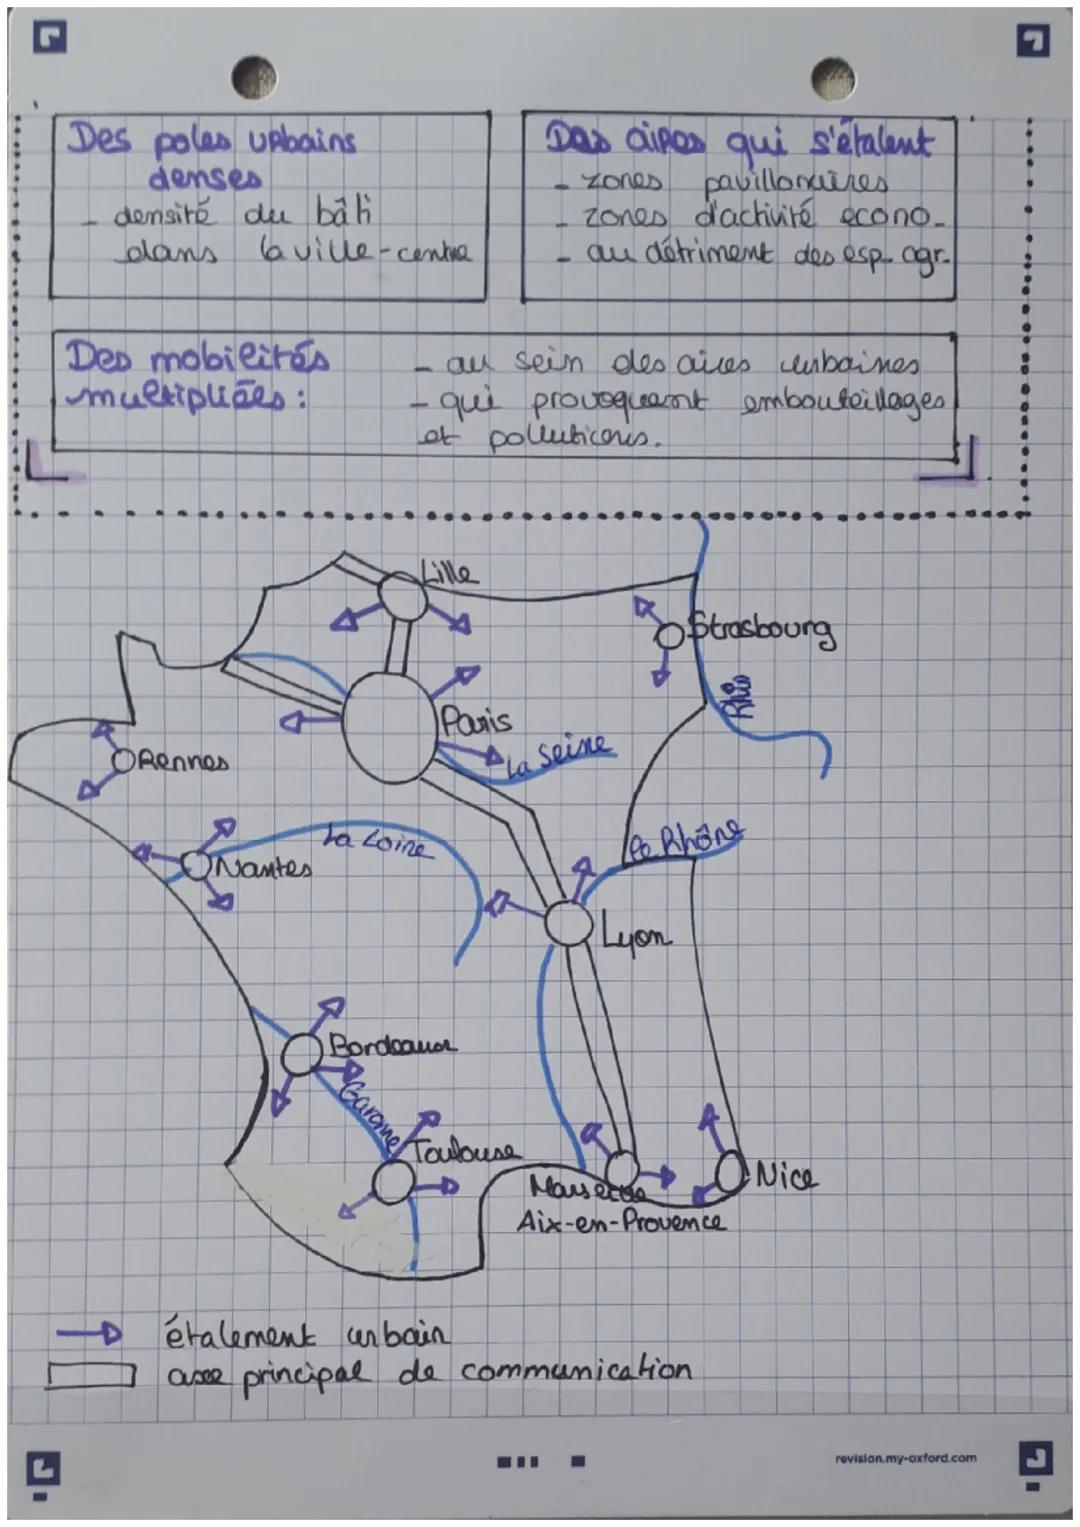 Des poles urbains
denses
- densité du bâti
dans la ville-centre
Des aires qui s'étalent
- zones pavillonaires
- zones d'activité écono-
- au détriment des esp. agr.
Des mobilités
multipliées :
- au sein des aires urbaines
- qui provoquent embouteillages
et pollutions.
Lille
Strasbourg
Rhin
Paris
La Seine
Rennes
La Loire
Nantes
Le Rhône
Lyon
Bordeaux
Garonne
Toulouse
Marseille
Aix-en-Provence
Nice
étalement urbain
axe principal de communication
revision.my-oxford.com